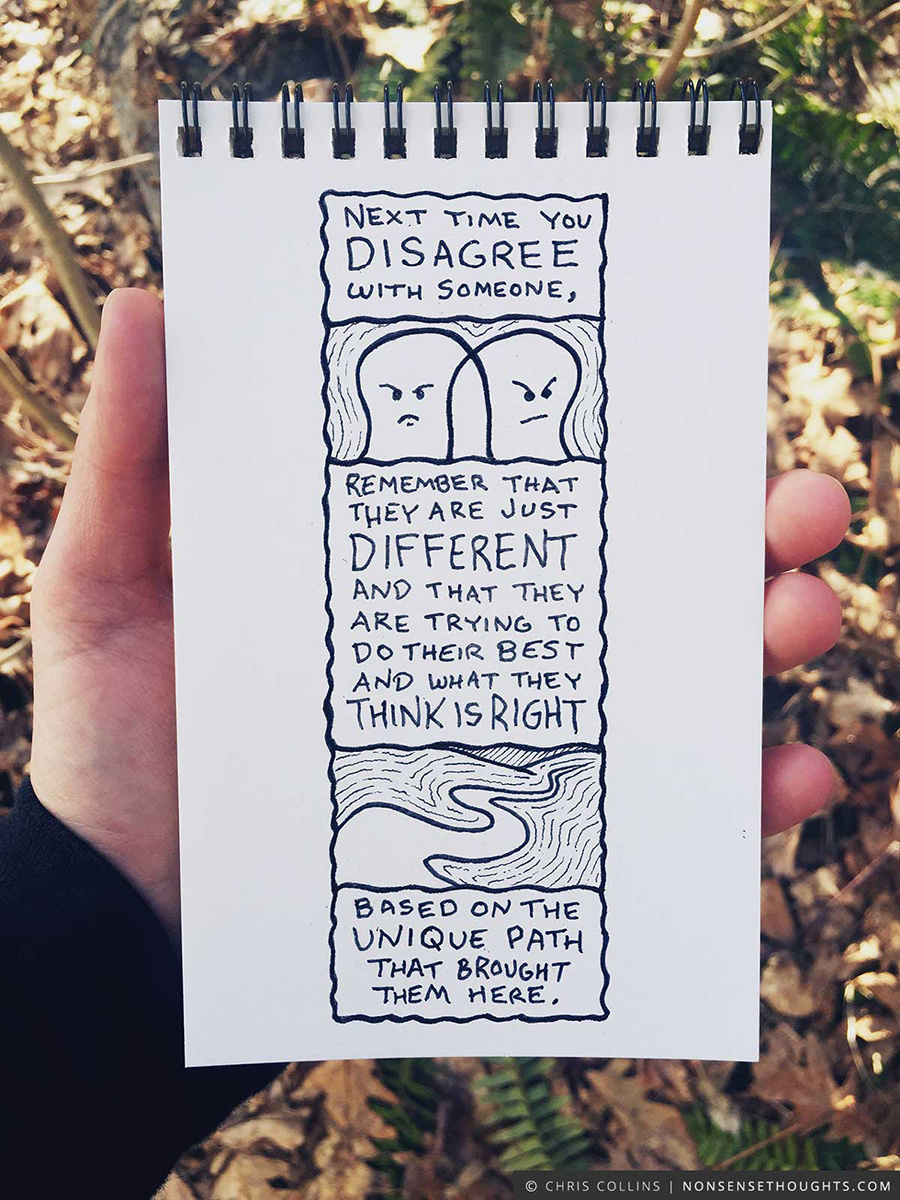 NEXT TIME YOU
DISAGREE
WITH SOMEONE,
REMEMBER THAT
THEY ARE JUST
DIFFERENT
AND THAT THEY
ARE TRYING TO
DO THEIR BEST
AND WHAT THEY
THINK IS RIGHT
BASED ON THE
UNIQUE PATH
THAT BROUGHT
THEM HERE.
© CHRIS COLLINS | NONSENSETHOUGHTS.COM